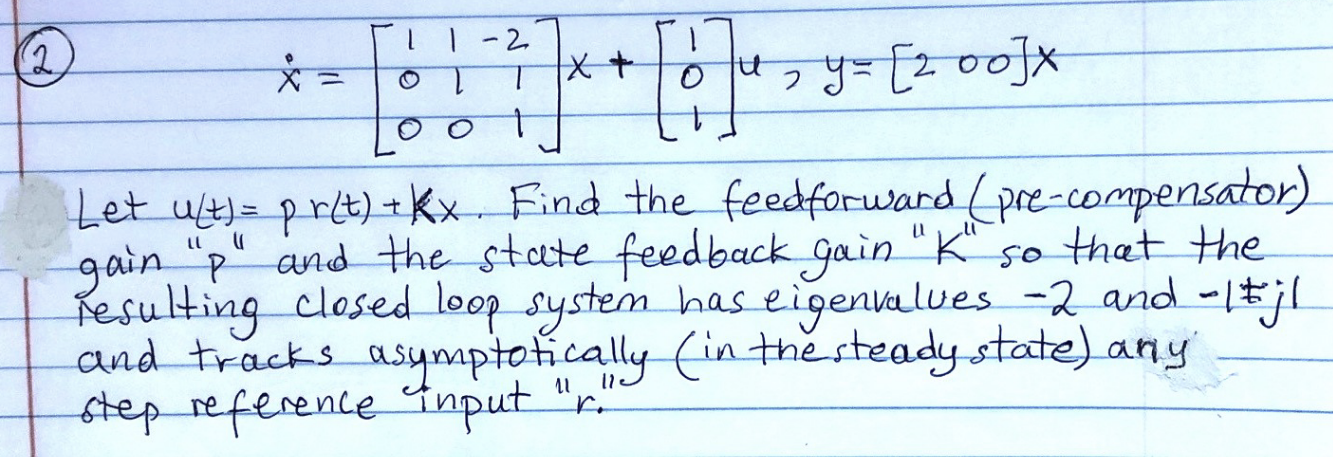 ② ẋ = [1 1 -2; 0 1 1; 0 0 1]x + [1; 0; 1]u, y = [2 0 0]x
Let u(t) = p r(t) + Kx. Find the feedforward (pre-compensator)
gain "p" and the state feedback gain "K" so that the
resulting closed loop system has eigenvalues -2 and -1±j1
and tracks asymptotically (in the steady state) any
step reference input "r."